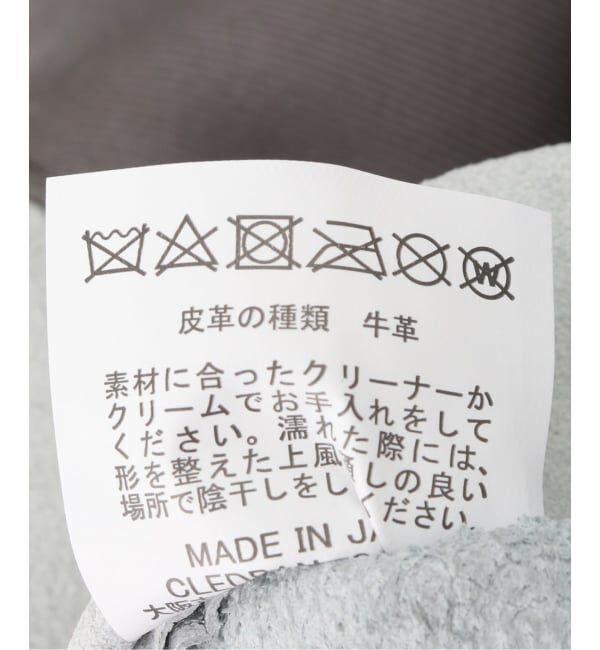 皮革の種類 牛革
素材に合ったクリーナーか
クリームでお手入れをして
ください。濡れた際には、
形を整えた上風通しの良い
場所で陰干しをしください。
MADE IN JA